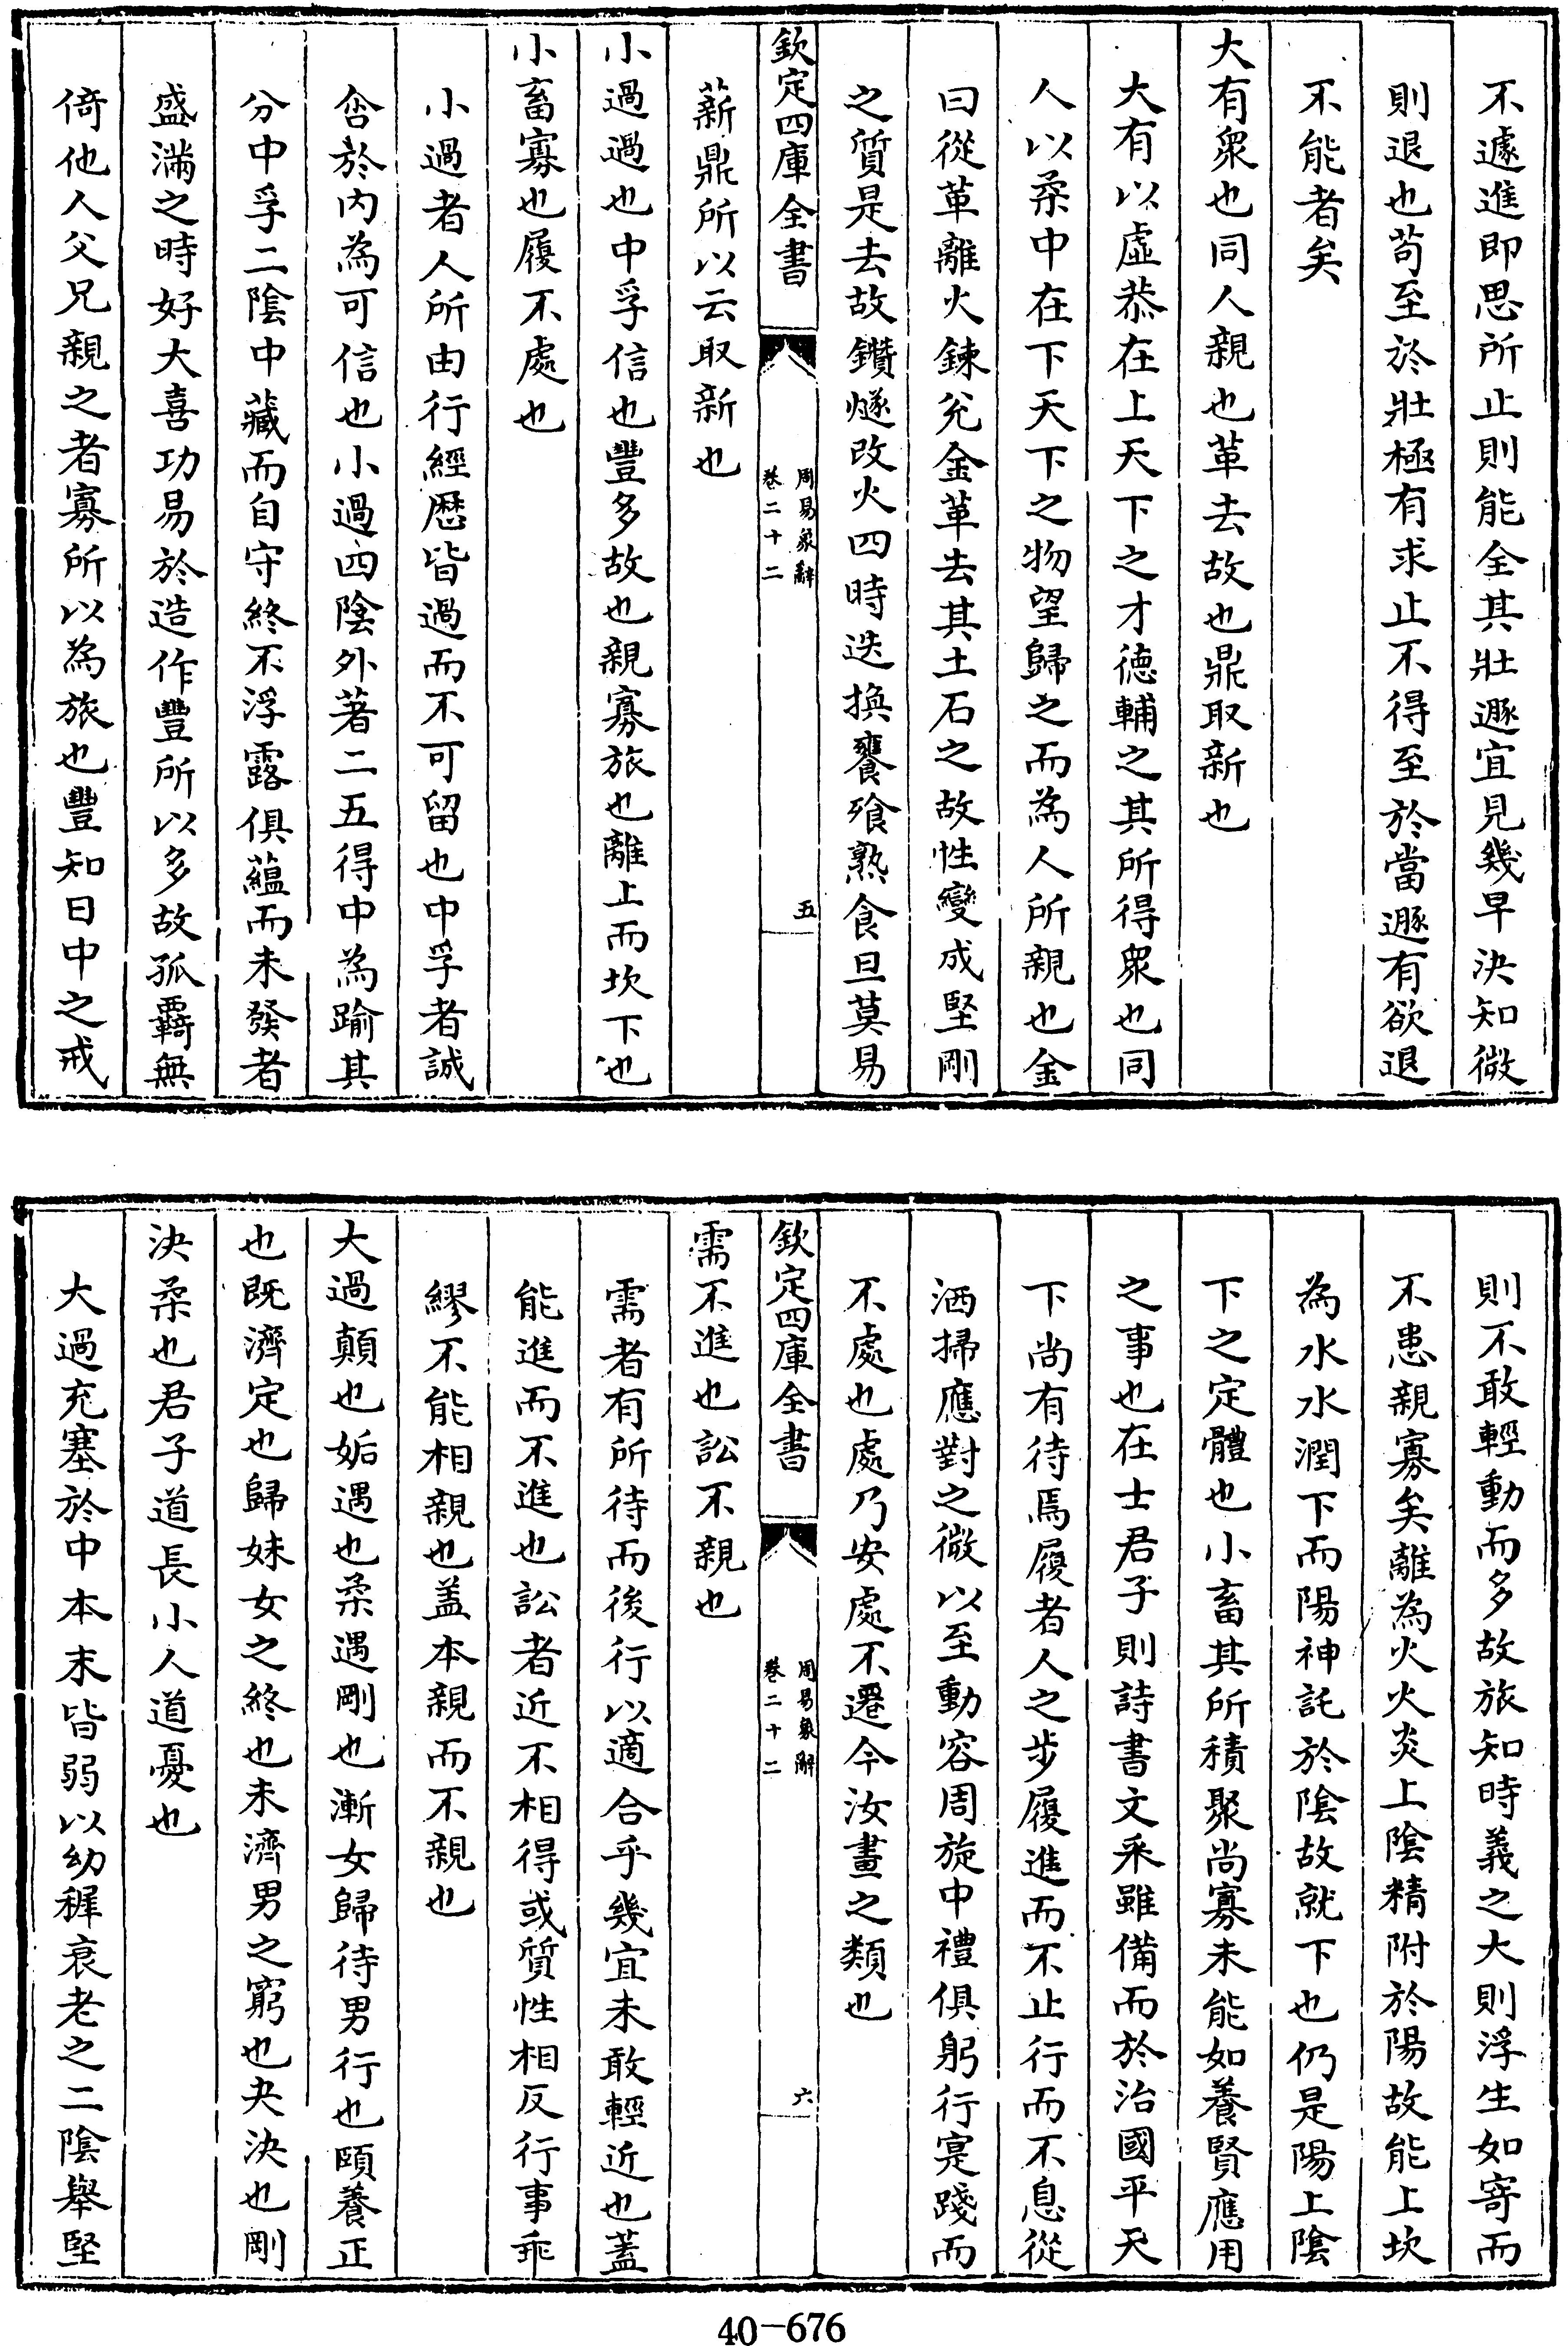 不遽進即思所止則能全其壯遯宜見幾早決知微
則退也苟至於壯極有求止不得至於當遯有欲退
不能者矣
大有衆也同人親也革去故也鼎取新也
大有以虛恭在上天下之才德輔之其所得衆也同
人以柔中在下天下之物望歸之而為人所親也金
曰從革離火鍊兌金革去其土石之故性變成堅剛
之質是去故鑽燧改火四時迭換饔飱熟食旦莫易
欽定四庫全書
周易象辭
卷二十二
五
薪鼎所以云取新也
小過過也中孚信也豐多故也親寡旅也離上而坎下也
小畜寡也履不處也
小過者人所由行經歷皆過而不可留也中孚者誠
含於内為可信也小過四陰外著二五得中為踰其
分中孚二陰中藏而自守終不浮露俱藴而未發者
盛滿之時好大喜功易於造作豐所以多故孤羇無
倚他人父兄親之者寡所以為旅也豐知日中之戒
則不敢輕動而多故旅知時義之大則浮生如寄而
不患親寡矣離為火火炎上陰精附於陽故能上坎
為水水潤下而陽神託於陰故就下也仍是陽上陰
下之定體也小畜其所積聚尚寡未能如養賢應用
之事也在士君子則詩書文采雖備而於治國平天
下尚有待焉履者人之步履進而不止行而不息從
洒掃應對之微以至動容周旋中禮俱躬行寔踐而
不處也處乃安處不遷今汝畫之類也
欽定四庫全書
周易象辭
卷二十二
六
需不進也訟不親也
需者有所待而後行以適合乎幾宜未敢輕近也蓋
能進而不進也訟者近不相得或質性相反行事乖
繆不能相親也盖本親而不親也
大過顛也姤遇也柔遇剛也漸女歸待男行也頤養正
也既濟定也歸妹女之終也未濟男之窮也夬決也剛
決柔也君子道長小人道憂也
大過充塞於中本末皆弱以幼稺衰老之二陰舉堅
40-676